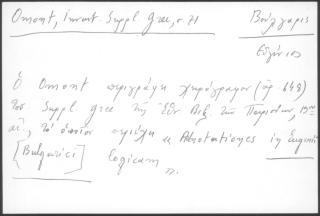 Omont, Invent. Suppl. Grec, σ. 71
Βούλγαρις
Εὐγένιος
Ὁ Omont περιγράφει χειρόγραφον (ἀρ. 649)
τοῦ Suppl. grec τῆς Ἐθν. Βιβ. τῶν Παρισίων, 19ου
αἰ., τὸ ὁποῖον περιέχει " Adnotationes in Eugenii
[Bulgarici] logicam
".